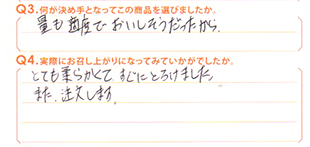 Q3.何が決め手となってこの商品を選びましたか。
量も適度でおいしそうだったから。
Q4.実際にお召し上がりになってみていかがでしたか。
とても柔らかくてすぐにとろけました。
また、注文します。